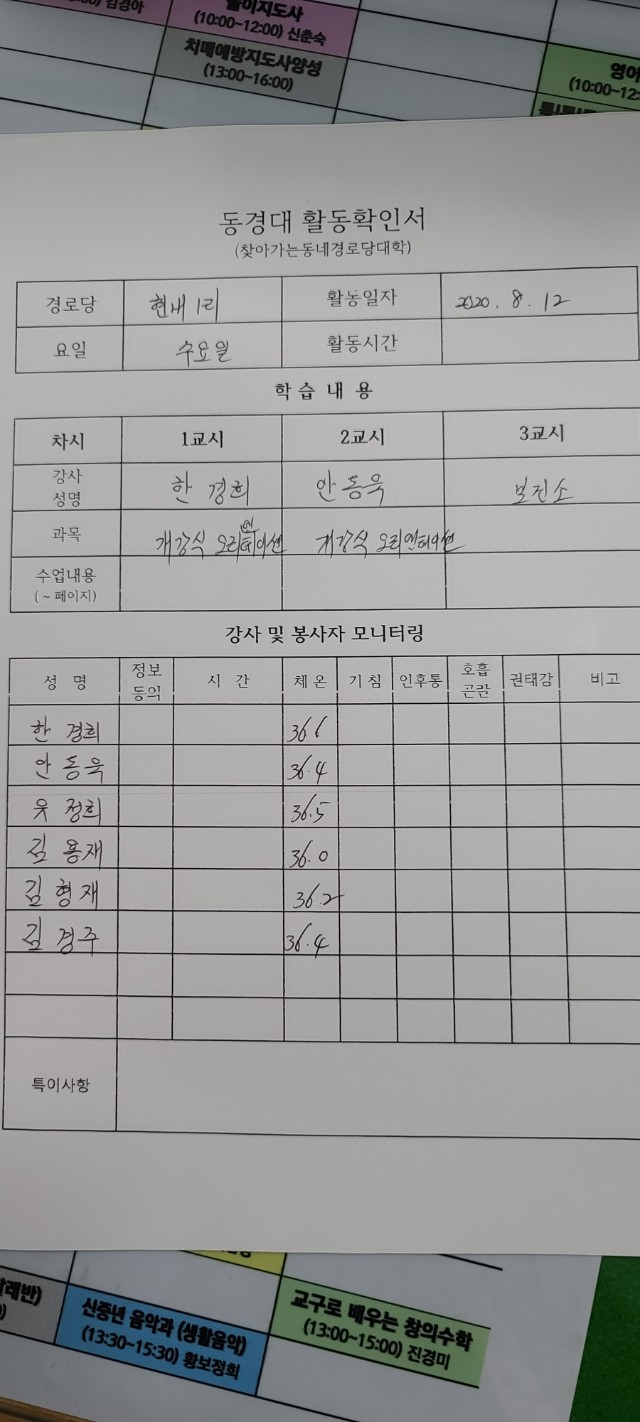 김경아
놀이지도사
(10:00~12:00) 신춘숙
치매예방지도사양성
(13:00~16:00)
영어
(10:00~12:
동경대 활동확인서
(찾아가는동네경로당대학)
경로당 현내 1리 활동일자 2020. 8. 12
요일 수요일 활동시간
학 습 내 용
차시 1교시 2교시 3교시
강사 성명 한 경희 안 동욱 보건소
과목 개강식 오리엔테이션 개강식 오리엔테이션
수업내용
(~페이지)
강사 및 봉사자 모니터링
성 명 정보 동의 시 간 체 온 기 침 인후통 호흡 곤란 권태감 비고
한 경희 36.6
안 동욱 36.4
정희 36.5
김 용재 36.0
김 형재 36.2
김 경주 36.4
특이사항
신중년 음악과 (생활음악)
(13:30~15:30) 황보정희
교구로 배우는 창의수학
(13:00~15:00) 진경미